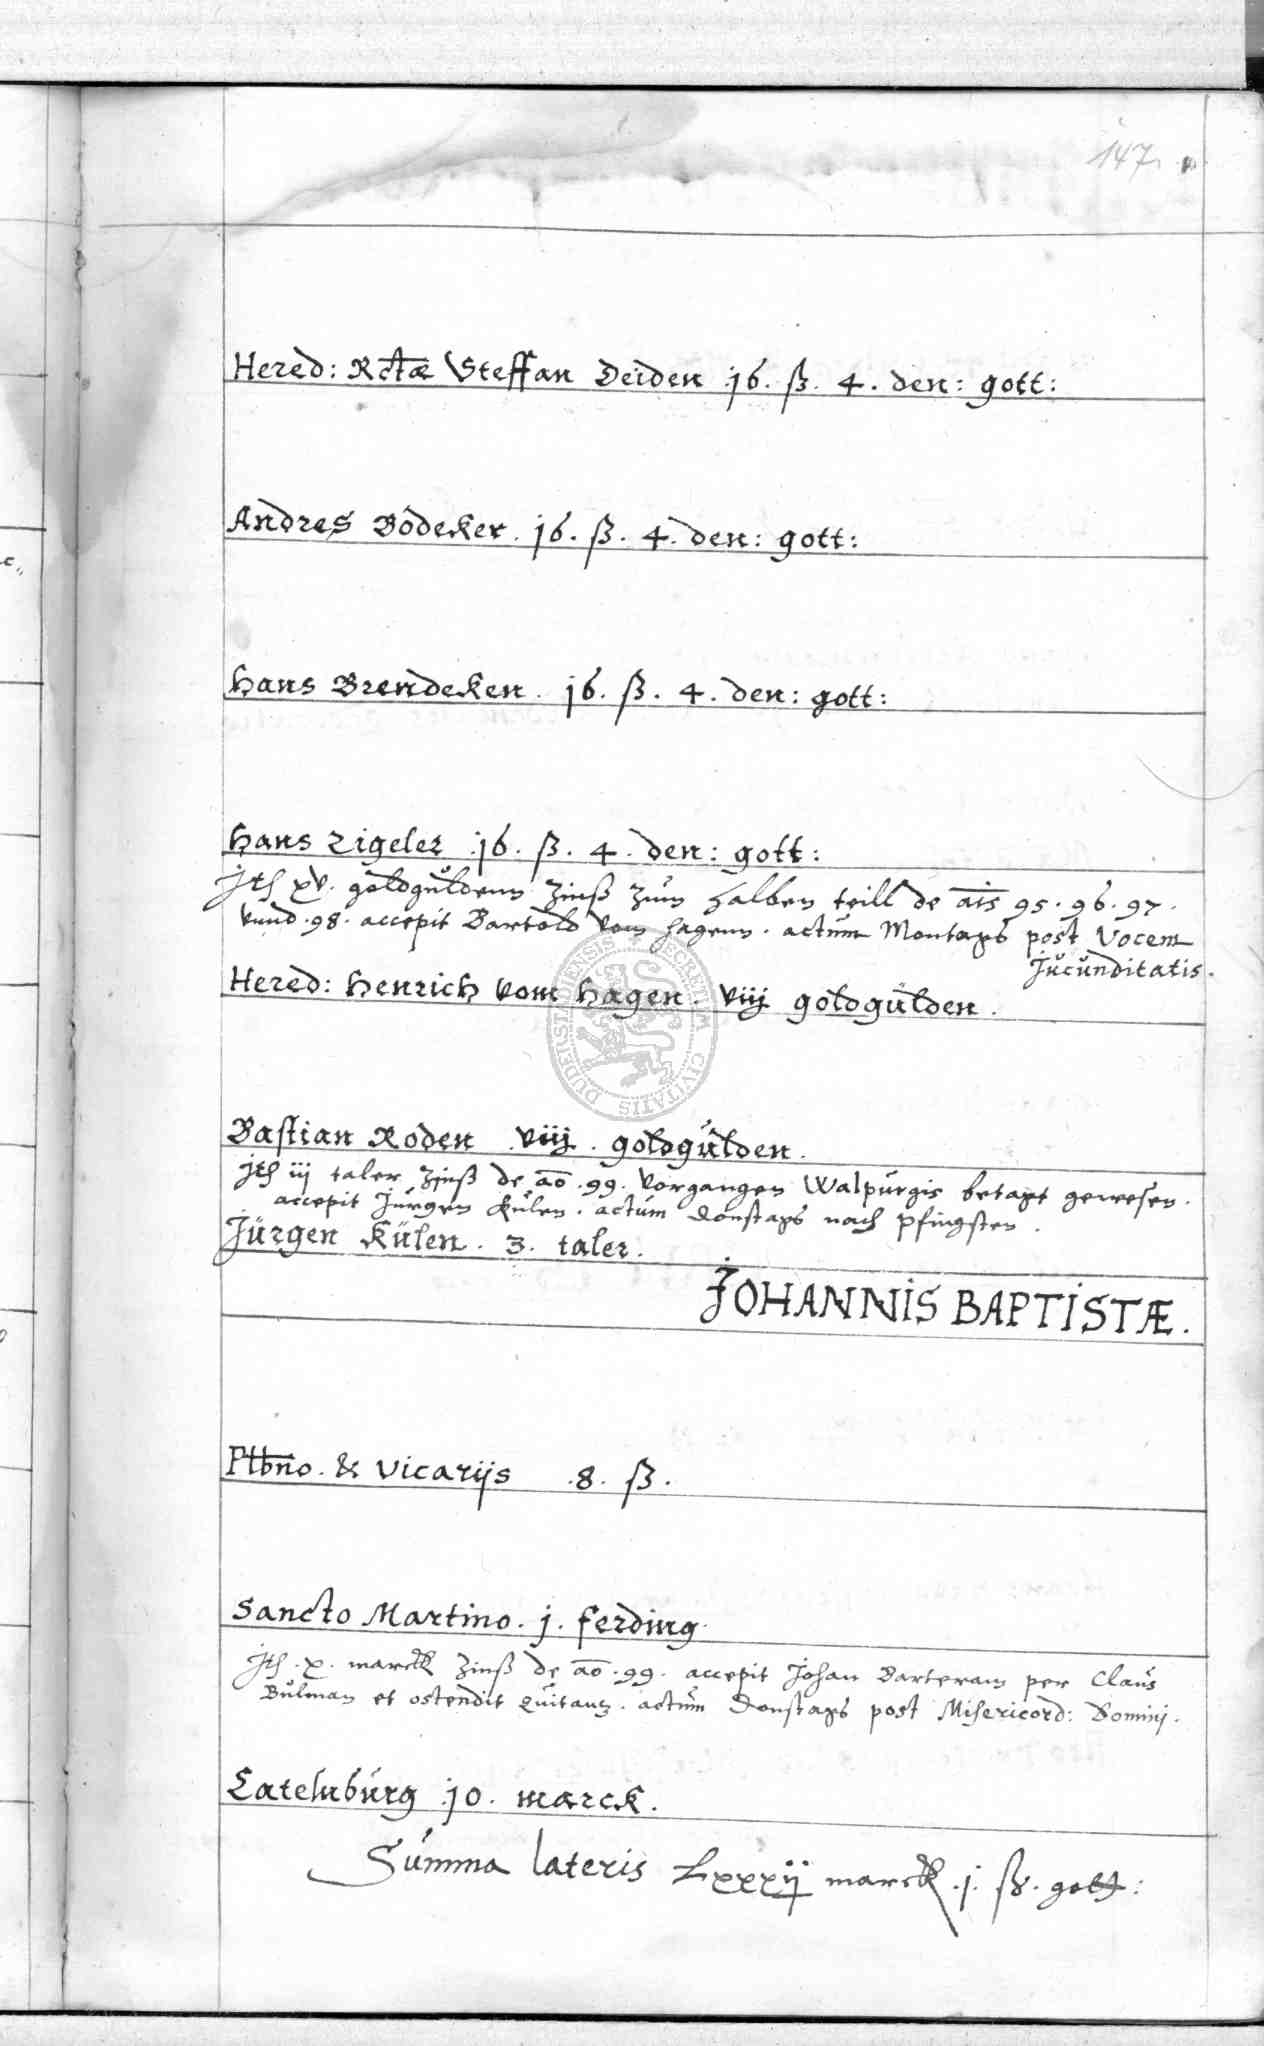 147.
Hered: Rctæ Steffan Deiden .j6. ß. 4. den: gott:
Andres Bodeker. j6. ß. 4. den: gott:
Hans Brendeken. j6. ß. 4. den: gott:
Hans Zigeler .j6. ß. 4. den: gott:
Jth xv. goldgůldenn Zinß zům halben teill de aıs 95. 96. 97.
vnnd .98. accepit Bartold vom Hagenn. actům Montags post Vocem
Jůcůnditatis.
Hered: Henrich vom Hagen. viij goldgůlden.
DUDERSTADENSIS SECRETUM CIVITATIS
Bastian Roden .viij. goldgůlden.
Jth iij taler Zinß de ao .99. vorgangen Walpůrgis betagt gewesen.
accepit Jůrgen Kůlen. actům Donstags nach pfingsten.
Jürgen Külen. 3. taler.
JOHANNIS BAPTISTÆ.
Plbno. & vicarijs .8. ß.
Sancto Martino. j. ferding.
Jth .x. marck Zinß de ao .99. accepit Johan Barteram per Claůs
Bůlman et ostendit quitanz. actům Donstags post Misericord: Domini.
Catelnbůrg .jo. marck.
Sům̃a lateris Lxxxij marck .j. ß. gott: